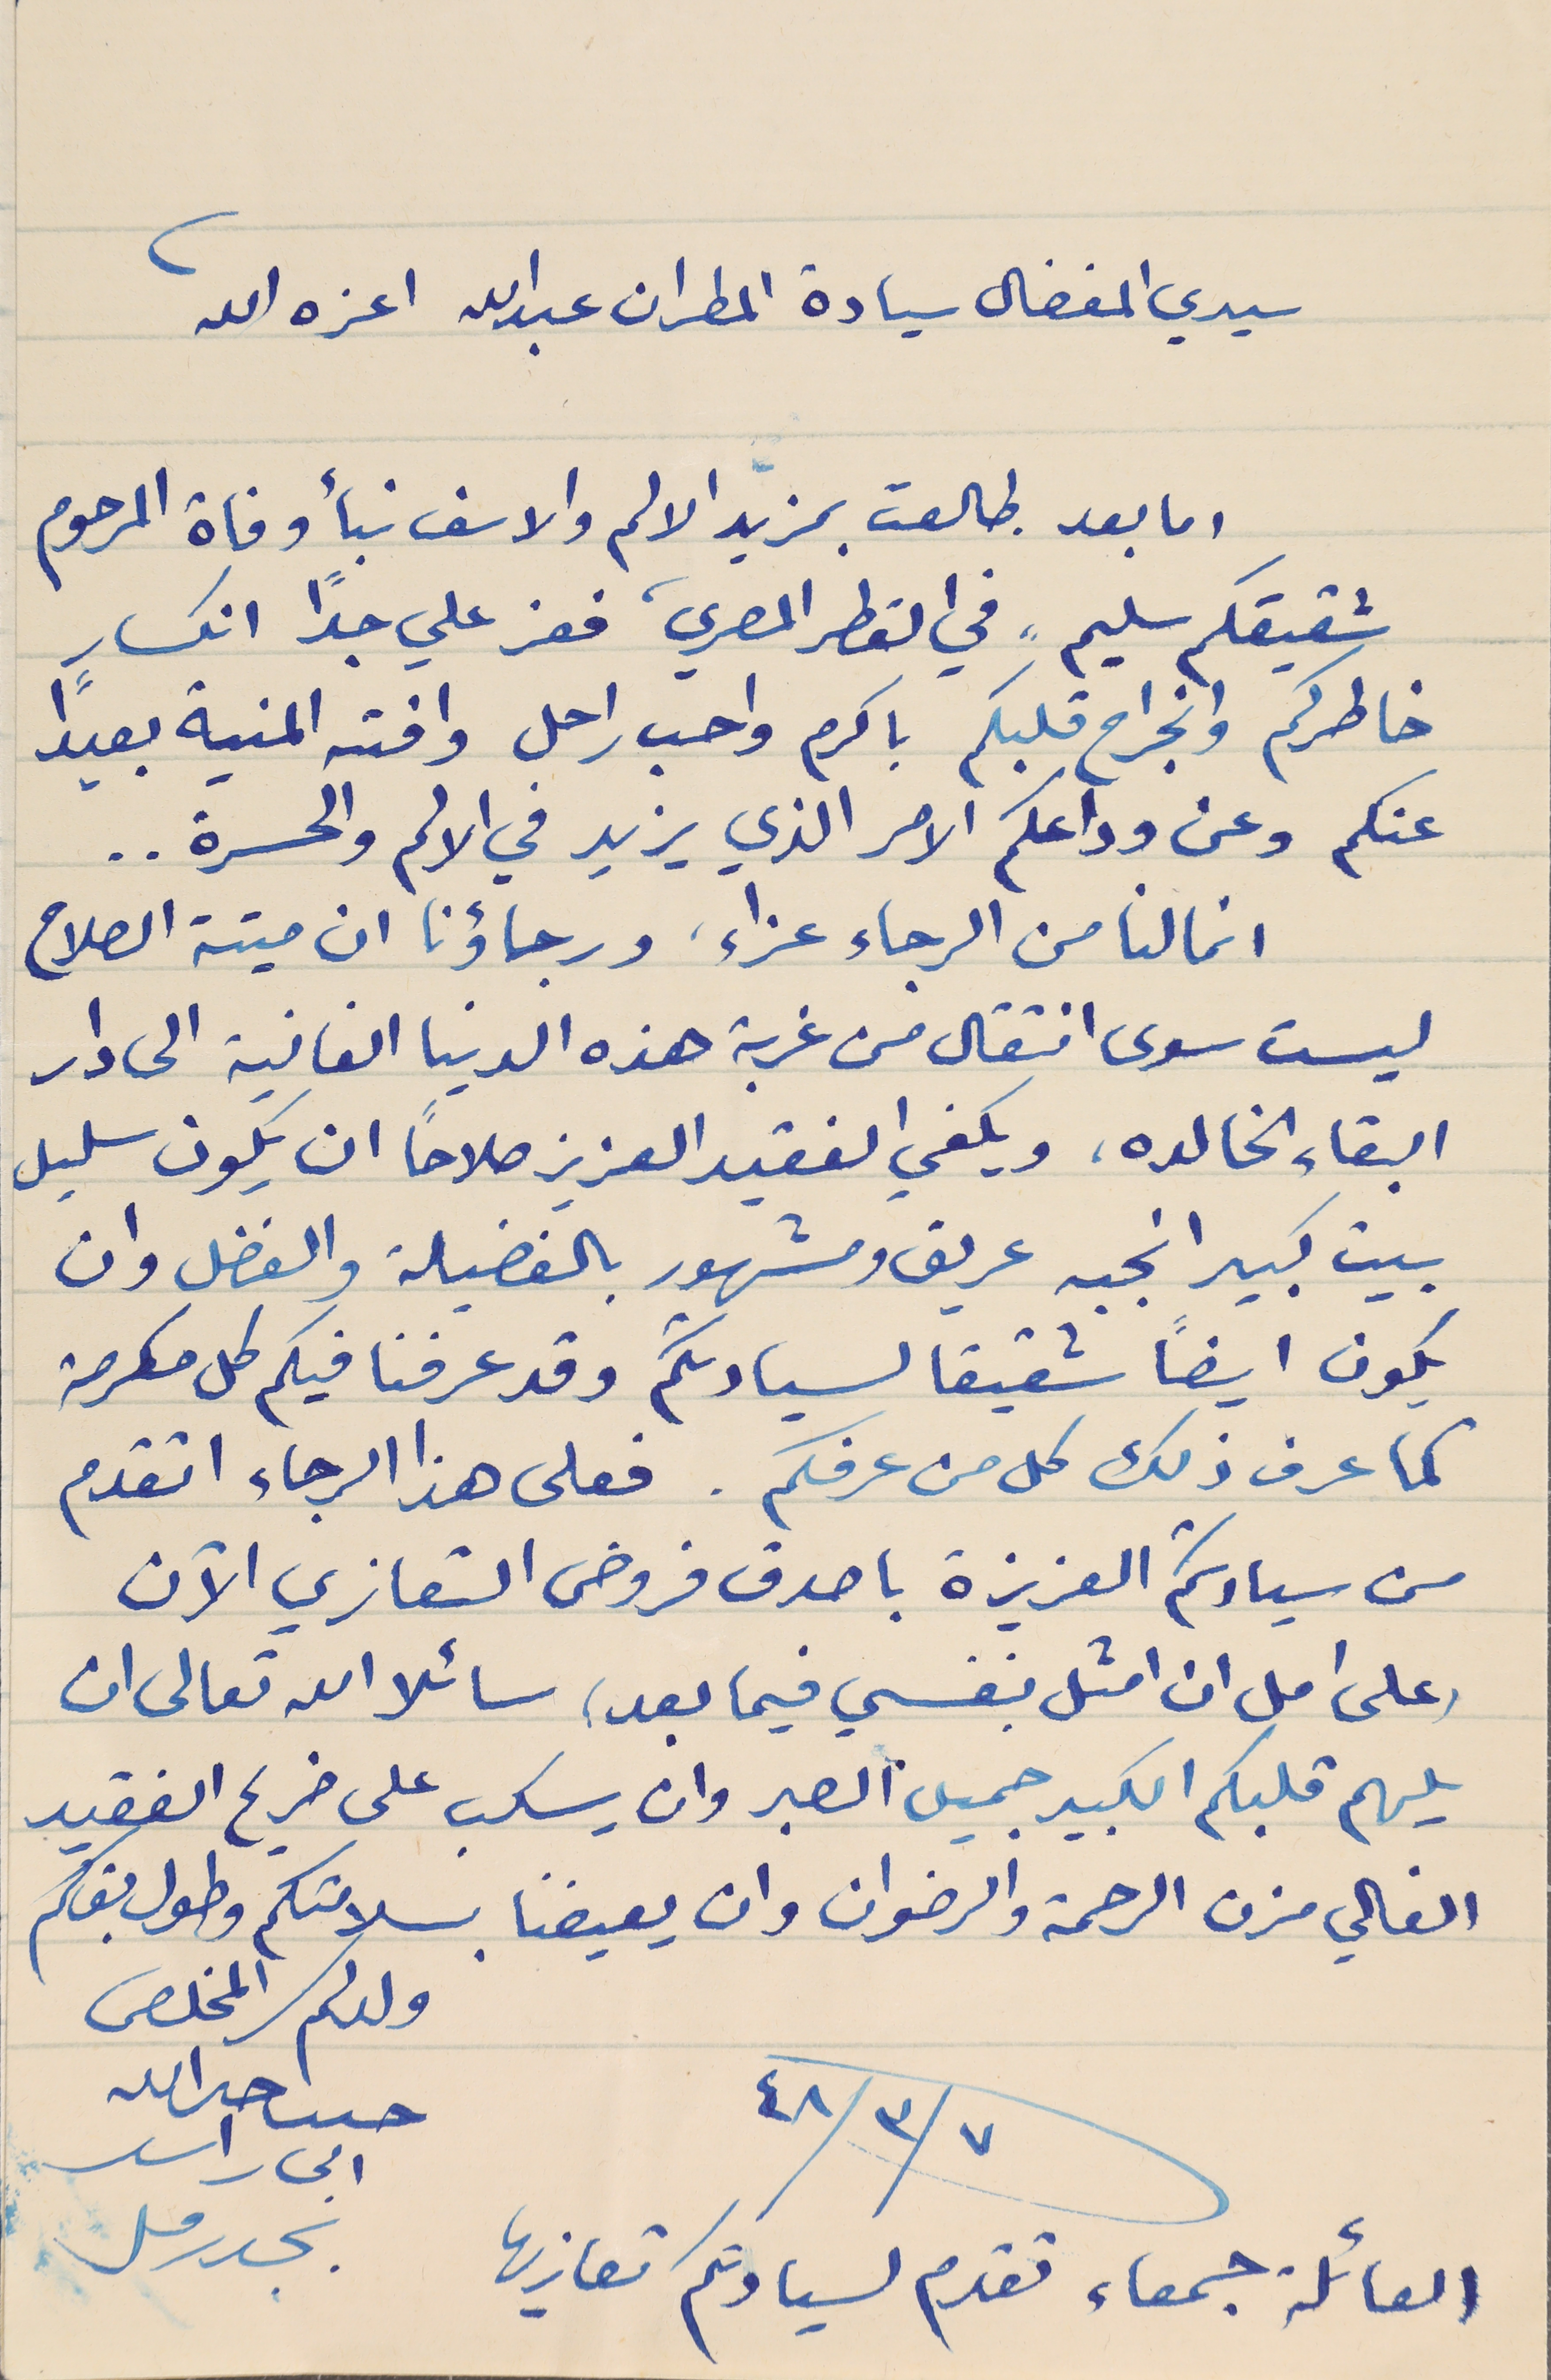 سيدي المفضال سيادة المطران عبدالله اعزه الله
اما بعد طالعت بمزيد الالم والاسف نبأ وفاة المرحوم
شقيقكم سليم، في القطر المصري، فعز علي جدًا انكسار
خاطركم وانجراح قلبكم باكرم واحب راحل وافته المنية بعيدًا
عنكم وعن وداعكم الامر الذي يزيد في الالم والحسرة ..
انما لنا من الرجاء عزاء، ورجاؤنا ان ميتة الصلاح
ليست سوى انتقال من غربة هذه الدنيا الفانية الى دار
البقاء الخالده، ويكفي الفقيد العزيز صلاحًا ان يكون سليل
بيت كبير انجبه عريق ومشهور بالفضيلة والفضل وان
يكون ايضًا شقيقا لسيادتكم وقد عرفنا فيكم كل مكرمة
كما عرف ذلك كل من عرفكم. فعلى هذا الرجاء اتقدم
من سيادتكم العزيزة باصدق فروض التعازي الآن
وعلى امل ان امثل بنفسي فيما بعد، سائلا الله تعالى ان
يلهم قلبكم الكبير جميل الصبر وان يسكب على ضريح الفقيد
الغالي مزن الرحمة والرضوان وان يعيضنا بسلامتكم وطول بقاكم
ولدكم المخلص
٧/٣/٤٨
العائلة جمعاء تقدم لسيادتكم تعازيها